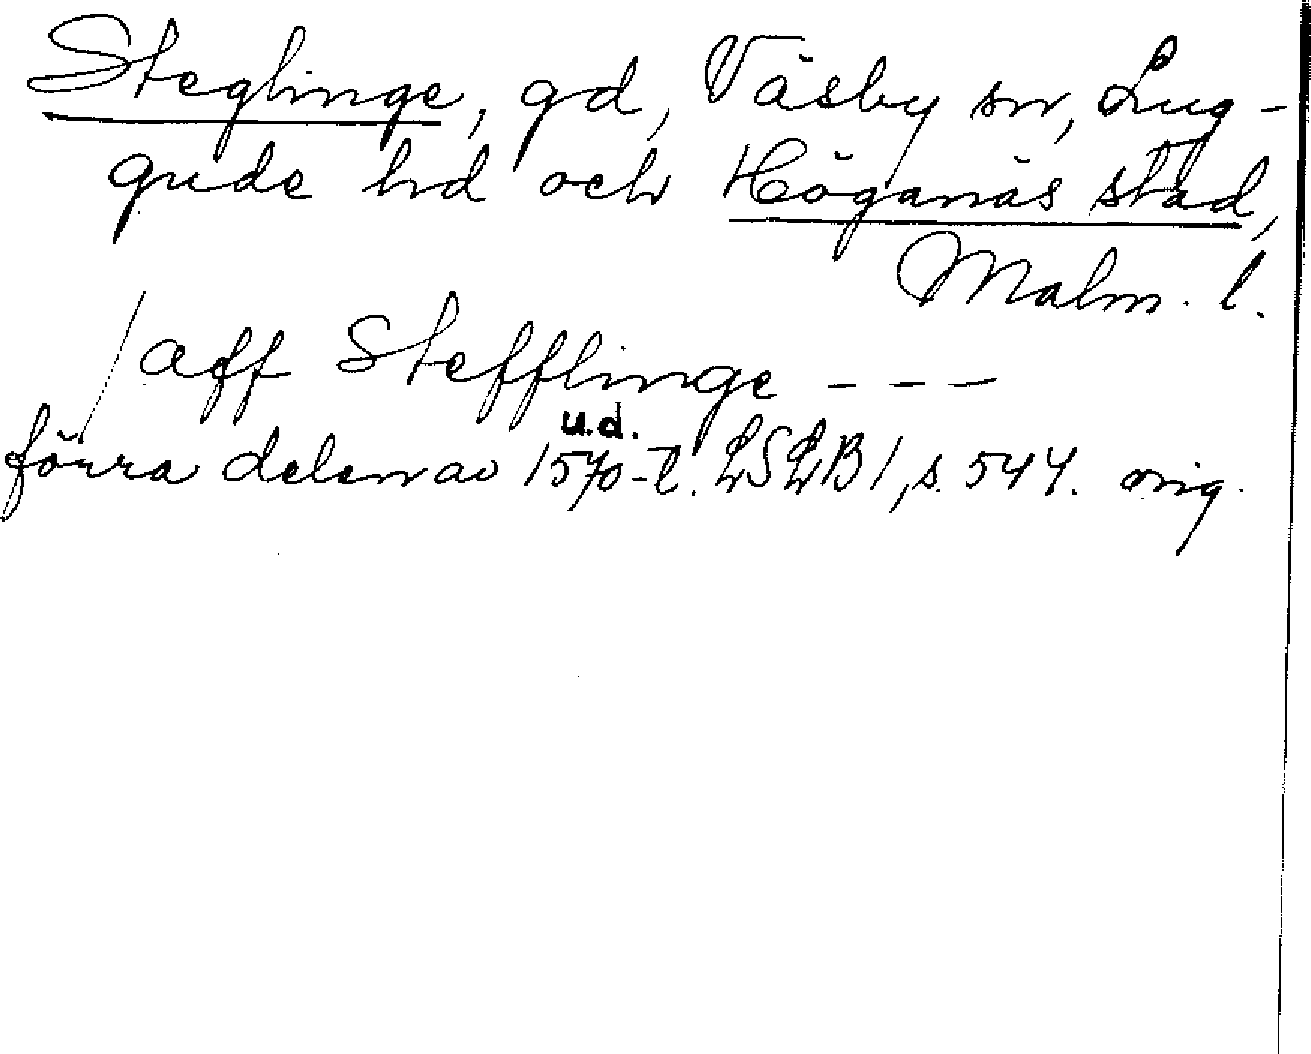 Steglinge, gd, Väsby sn, Lug-
gude hd och Höganäs stad,
Malm. l.
/ aff Stefflinge - - -
u.d.
förra delen av 1570-t. LSLB 1, s. 544. orig.